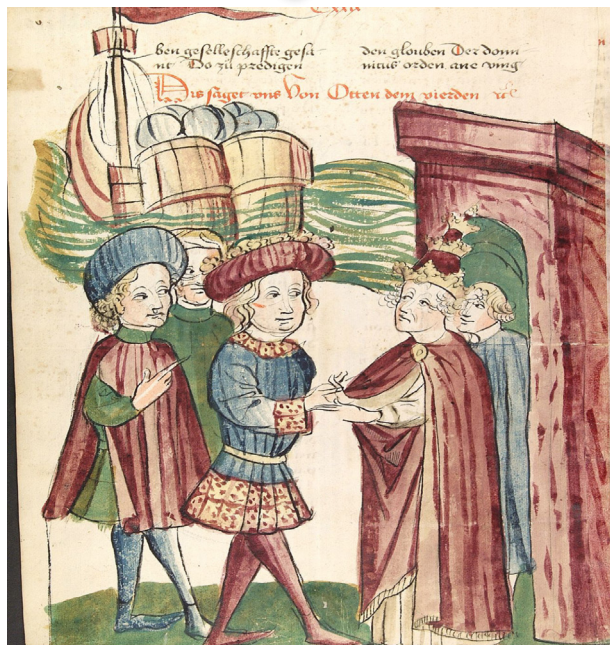 ben geselleschafft gesa
nt Do zu predigen
den glouben Der domi
nicus orden ane ving
Dis saget vns von Otten dem vierden